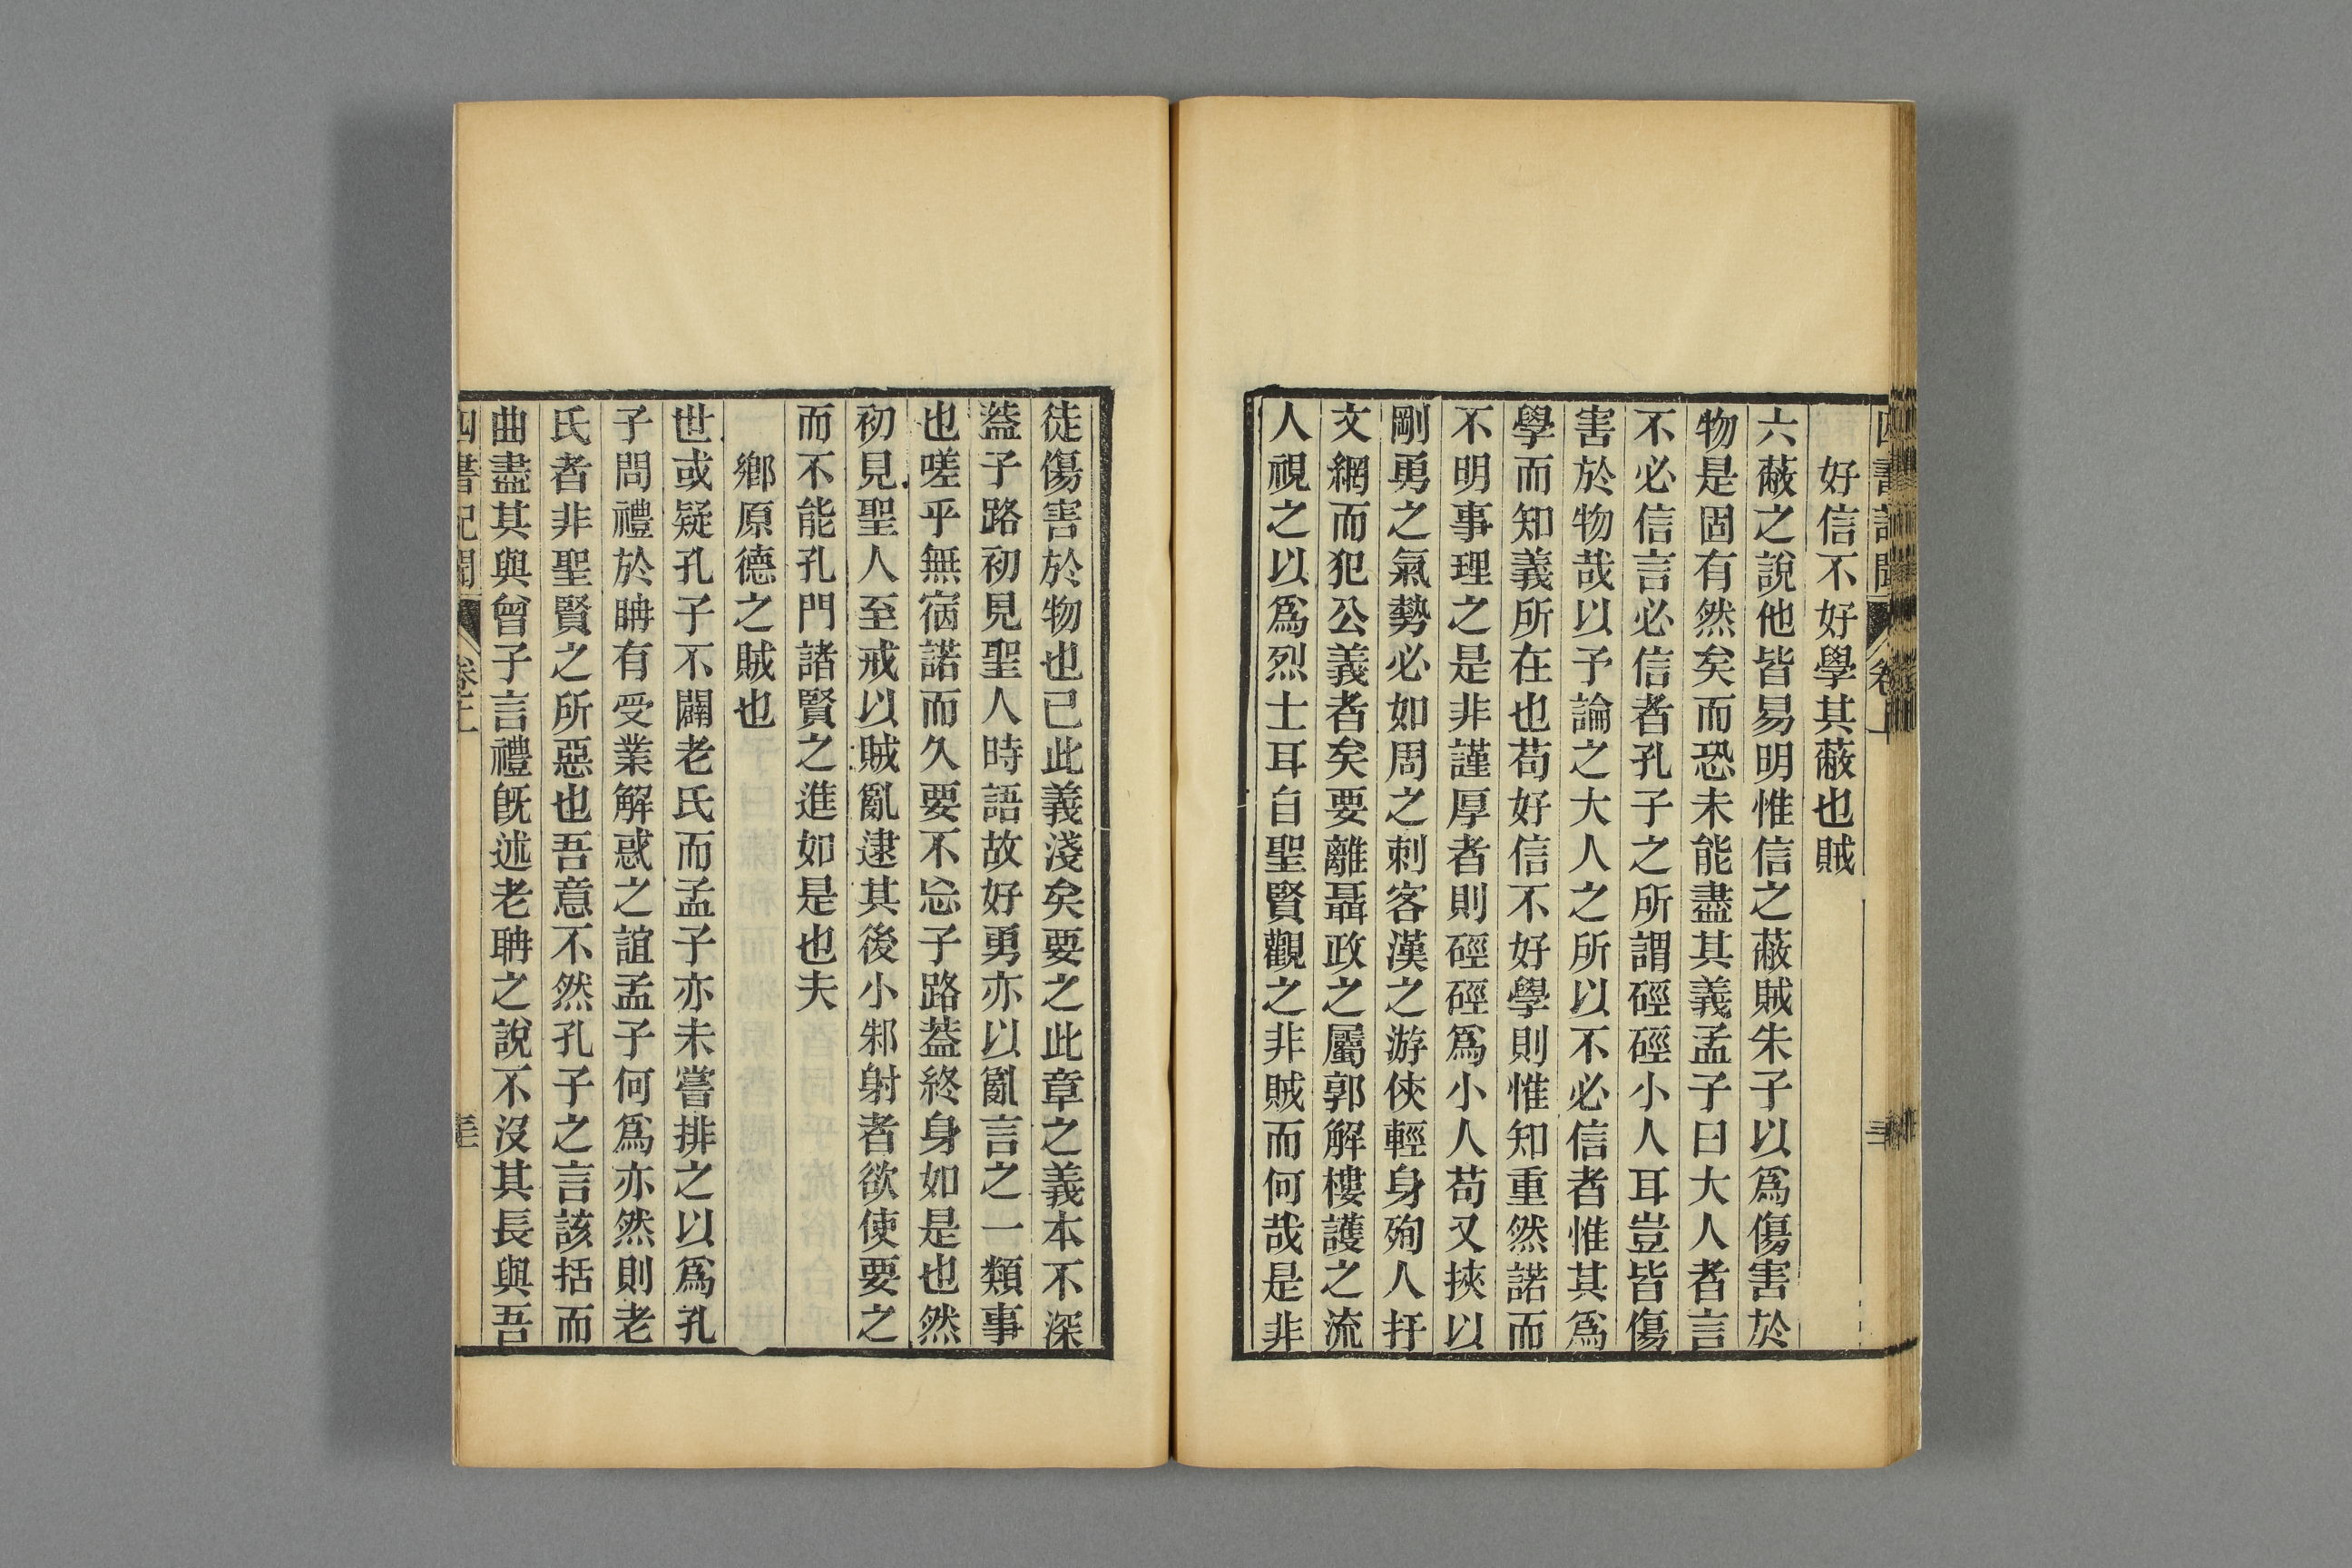 四書記聞 卷二
好信不好學其蔽也賊
六蔽之說他皆易明惟信之蔽賊朱子以爲傷害於
物是固有然矣而恐未能盡其義孟子曰大人者言
不必信言必信者孔子之所謂硜硜小人耳豈皆傷
害於物哉以予論之大人之所以不必信者惟其爲
學而知義所在也苟好信不好學則惟知重然諾而
不明事理之是非謹厚者則硜硜爲小人苟又挾以
剛勇之氣勢必如周之刺客漢之游俠輕身殉人扞
文網而犯公義者矣要離聶政之屬郭解樓護之流
人視之以爲烈士耳自聖賢觀之非賊而何哉是非
徒傷害於物也己此義淺矣要之此章之義本不深
葢子路初見聖人時語故好勇亦以亂言之一類事
也嗟乎無宿諾而久要不忘子路葢終身如是也然
初見聖人至戒以賊亂逮其後小邾射者欲使要之
而不能孔門諸賢之進如是也夫
鄉原德之賊也
世或疑孔子不闢老氏而孟子亦未嘗排之以爲孔
子問禮於聃有受業解惑之誼孟子何爲亦然則老
氏者非聖賢之所惡也吾意不然孔子之言該括而
曲盡其與曾子言禮旣述老聃之說不沒其長與吾
四書記聞 卷二